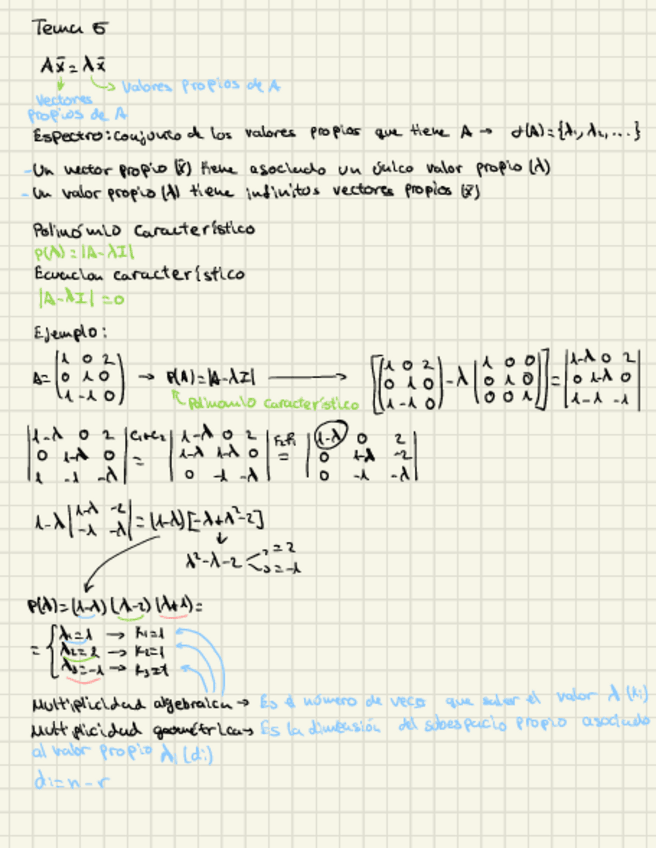 Tema 5
Ax̄ = λx̄
Valores propios de A
Vectores
propios de A
Espectro: conjunto de los valores propios que tiene A → σ(A) = {λ₁, λ₂, ...}
- Un vector propio (x̄) tiene asociado un único valor propio (λ)
- Un valor propio (λ) tiene infinitos vectores propios (x̄)
Polinómio Característico
P(λ) = |A-λI|
Ecuacion característico
|A-λI| = 0
Ejemplo:
A = (1 0 2 / 0 1 0 / 1 -1 0) → P(λ) = |A-λI| → [(1 0 2 / 0 1 0 / 1 -1 0) - λ (1 0 0 / 0 1 0 / 0 0 1)] = |1-λ 0 2 / 0 1-λ 0 / 1 -1 -λ|
Polinomio característico
|1-λ 0 2 / 0 1-λ 0 / 1 -1 -λ| C1+C2 = |1-λ 0 2 / 1-λ 1-λ 0 / 0 -1 -λ| F2-F1 = |1-λ 0 2 / 0 1-λ -2 / 0 -1 -λ|
1-λ |1-λ -2 / -1 -λ| = (1-λ) [-λ+λ²-2]
λ²-λ-2 < = 2
= -1
P(λ) = (1-λ) (λ-2) (λ+1) =
= { λ₁=1 → K₁=1
λ₂=2 → K₂=1
λ₃=-1 → K₃=1
Multiplicidad algebraica → Es el número de vece que el valor λ (Ki)
Multiplicidad geométrica → Es la dimensión del subespacio propio asociado
al valor propio λi (di)
di = n - r